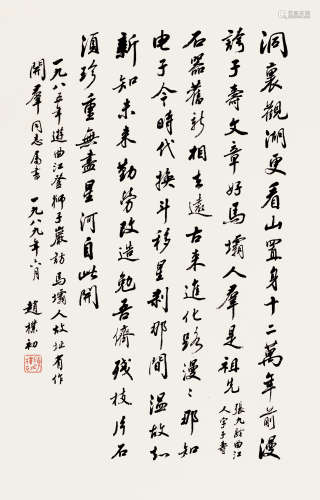 洞裏觀湖更看山置身十二萬年前漫
誇子壽文章好馬壩人羣是祖先
張九齡曲江
人字子壽
石器舊新相去遠古來進化路漫〻那知
电子今時代換斗移星刹那間溫故知
新知未来勤勞改造勉吾儕殘枝片石
須珍重無盡星河自此開
一九八五年遊曲江登獅子巖訪馬壩人故址有作
開羣同志屬書 一九八九年六月 趙樸初